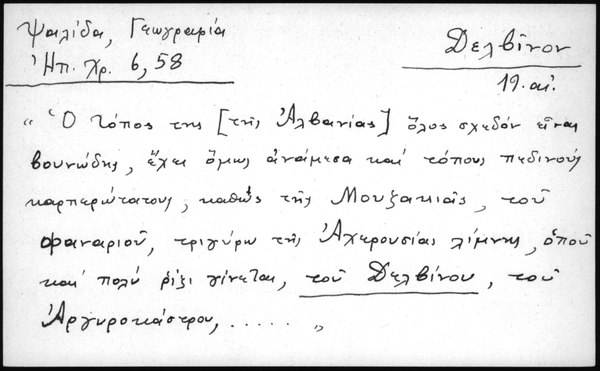 Ψαλίδα, Γεωγραφία
Ἠπ. Χρ. 6, 58
Δελβῖνον
19. αἰ.
"Ὁ τόπος της [τῆς Ἀλβανίας] ὅλος σχεδόν εἶναι
βουνώδης, ἔχει ὅμως ἀνάμεσα καί τόπους πεδινούς
καρπερώτατους, καθώς τῆς Μουζακιᾶς, τοῦ
Φαναριοῦ, τριγύρω τῆς Ἀχερουσίας λίμνης, ὁποῦ
καί πολύ ρίζι γίνεται, τοῦ Δελβίνου, τοῦ
Ἀργυροκάστρου, ..... "